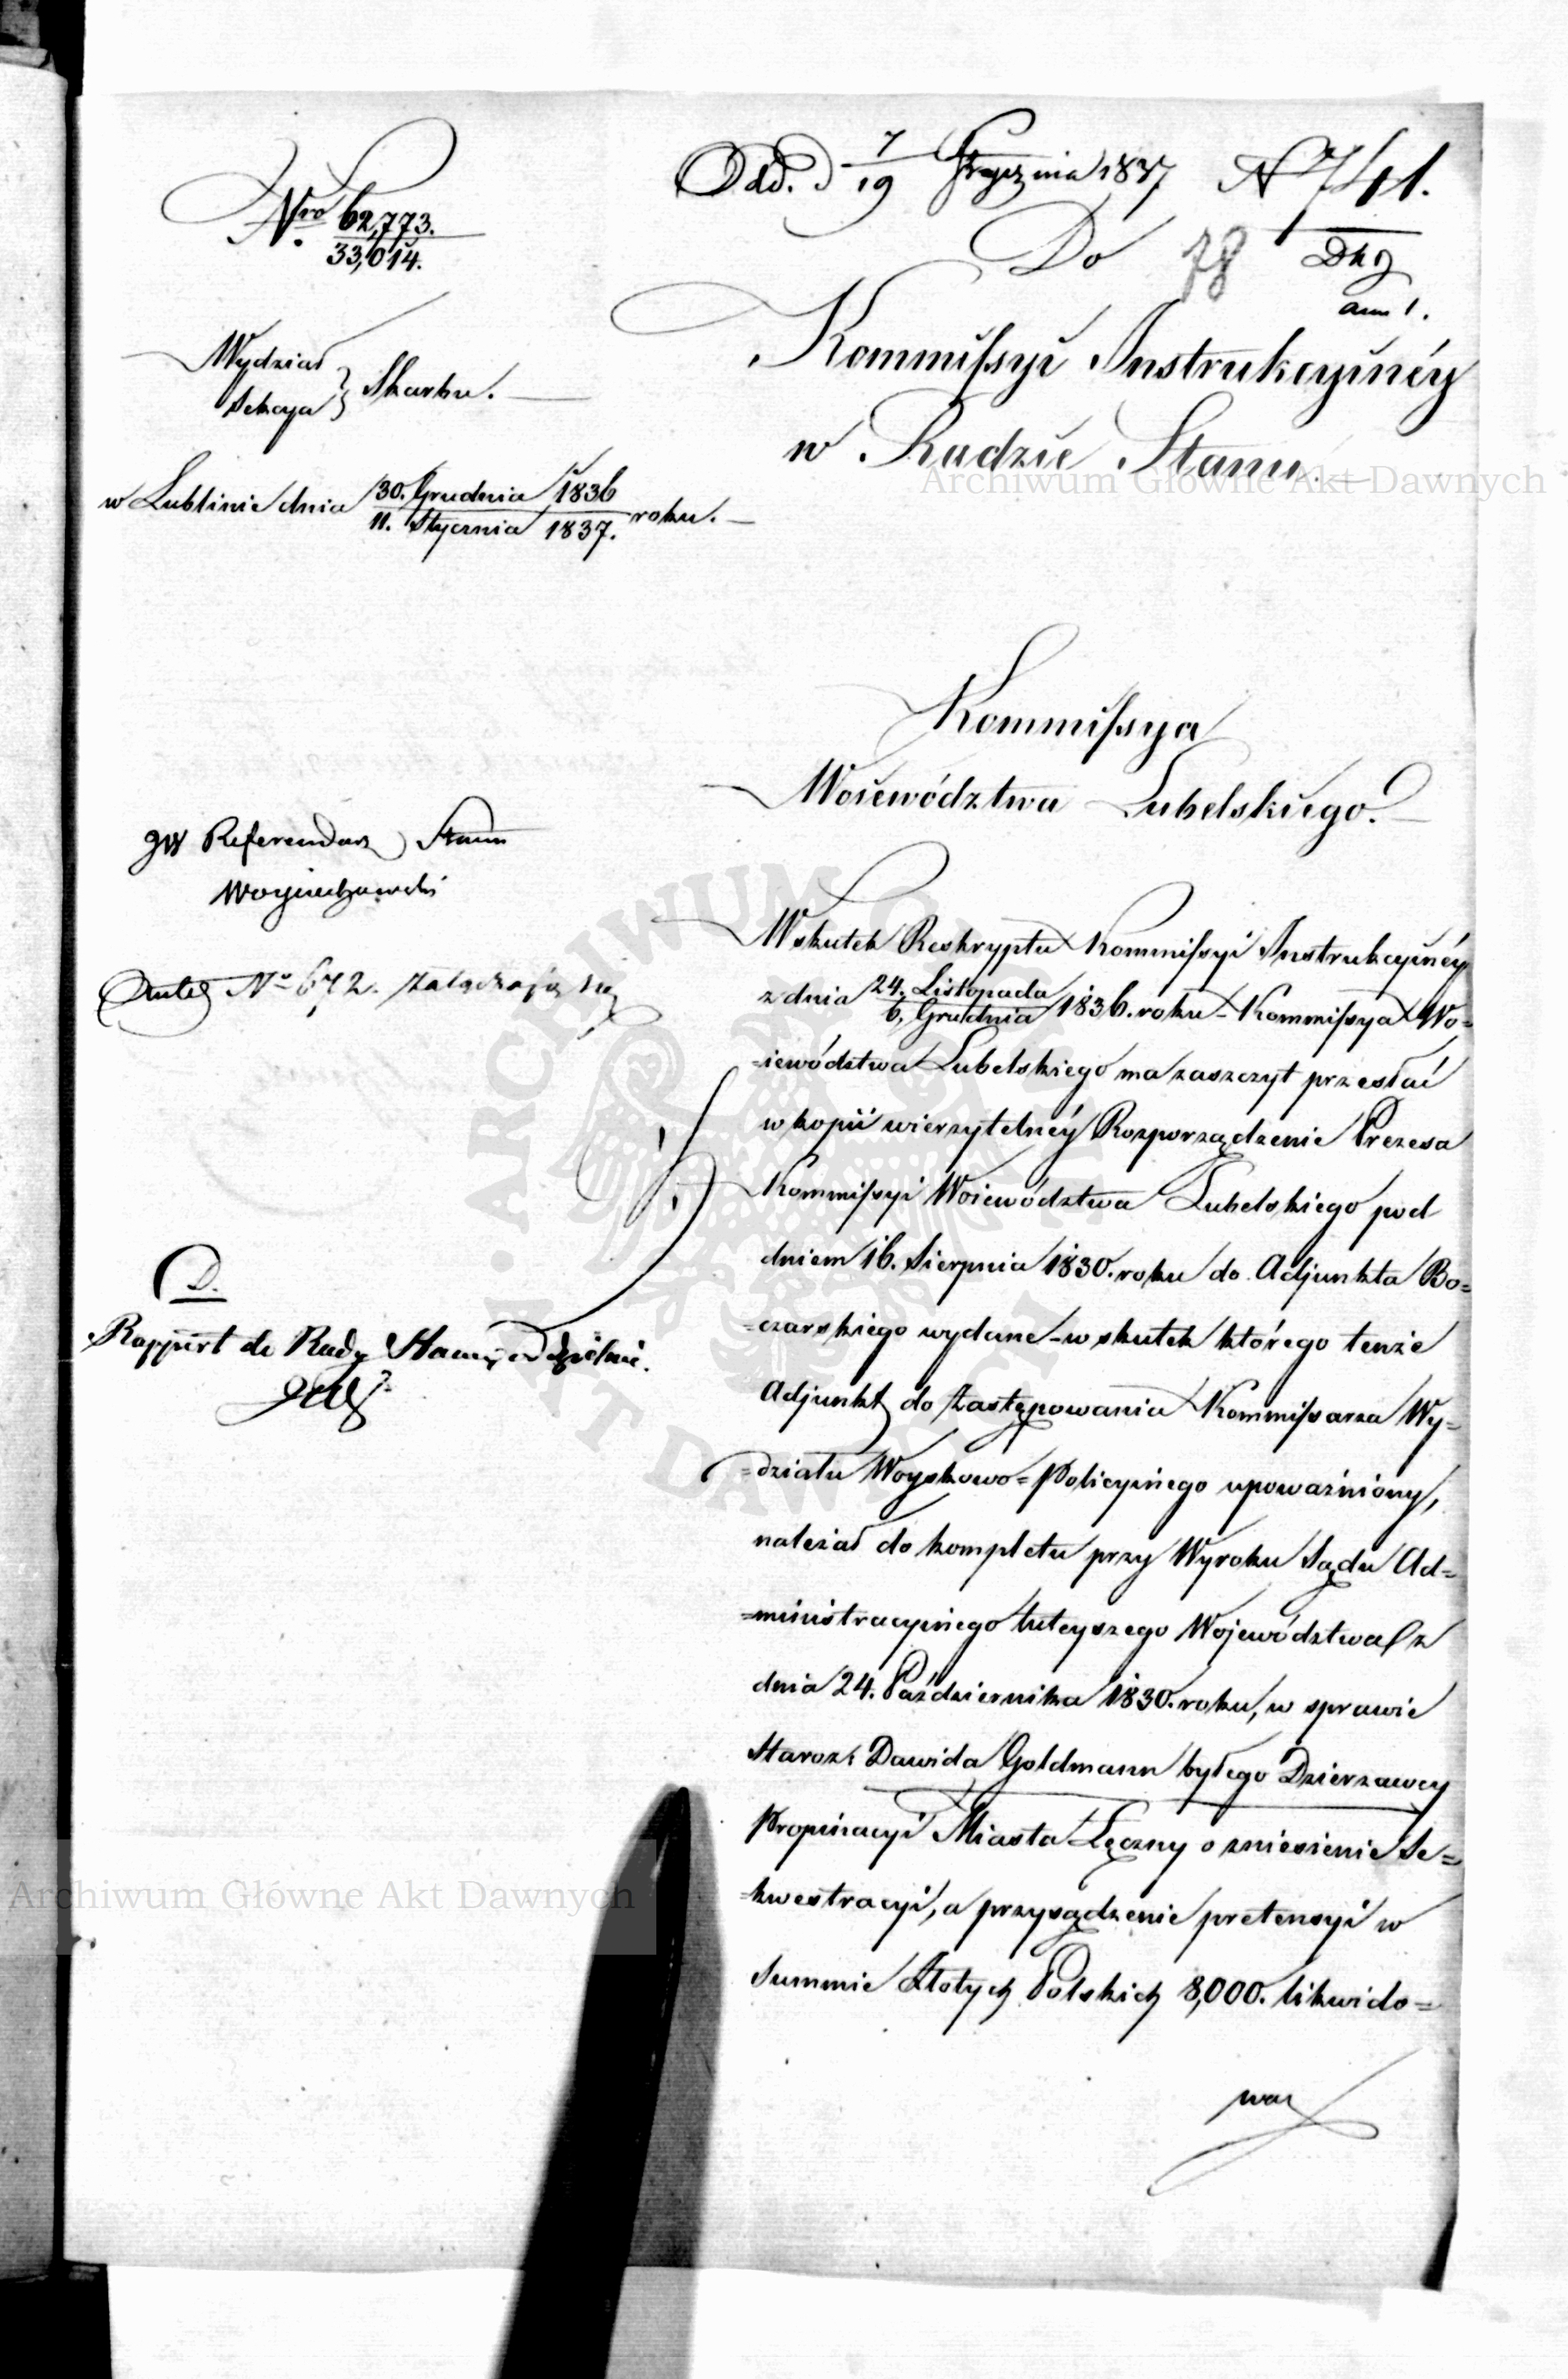 Nro 62,773.
33,014.
Wydział
Sekcya } Skarbu.
w Lublinie dnia 30. Grudnia 1836
11. Stycznia 1837. roku.
Odd. d 7/19 Stycznia 1837 N 741.
Do 78
ann 1.
Kommissyi Instrukcyinéy
w Radzie Stanu.
Archiwum Główne Akt Dawnych
Kommissya
Woiewództwa Lubelskiego.
JW Referendarz Stanu
Woyciechowski
N° 672. załączają się
D.
Rapport do Rady Stanu oddzielnie.
Wskutek Reskryptu Kommissyi Instrukcyinéy
z dnia 24. Listopada
6. Grudnia 1836. roku - Kommissya Wo=
=iewództwa Lubelskiego ma zaszczyt przesłać
w kopii wierzytelnéy Rozporządzenie Prezesa
Kommissyi Woiewództwa Lubelskiego pod
dniem 16. Sierpnia 1830. roku do Adjunkta Bo=
=czarskiego wydane - w skutek którego tenże
Adjunkt do zastępowania Kommissarza Wy=
=działu Woyskowo=Policyinego upoważniony,
należał do kompletu przy Wyroku Sądu Ad=
=ministracyinego tuteyszego Województwa z
dnia 24. Października 1830. roku, w sprawie
Staroz: Dawida Goldmann byłego Dzierzawcy
Propinacyi Miasta Łęczny o zniesienie Se=
=kwestracyi, a przysądzenie pretensyi w
Summie Złotych Polskich 8,000. likwido=
wa
Archiwum Główne Akt Dawnych
ARCHIWUM GŁÓWNE AKT DAWNYCH